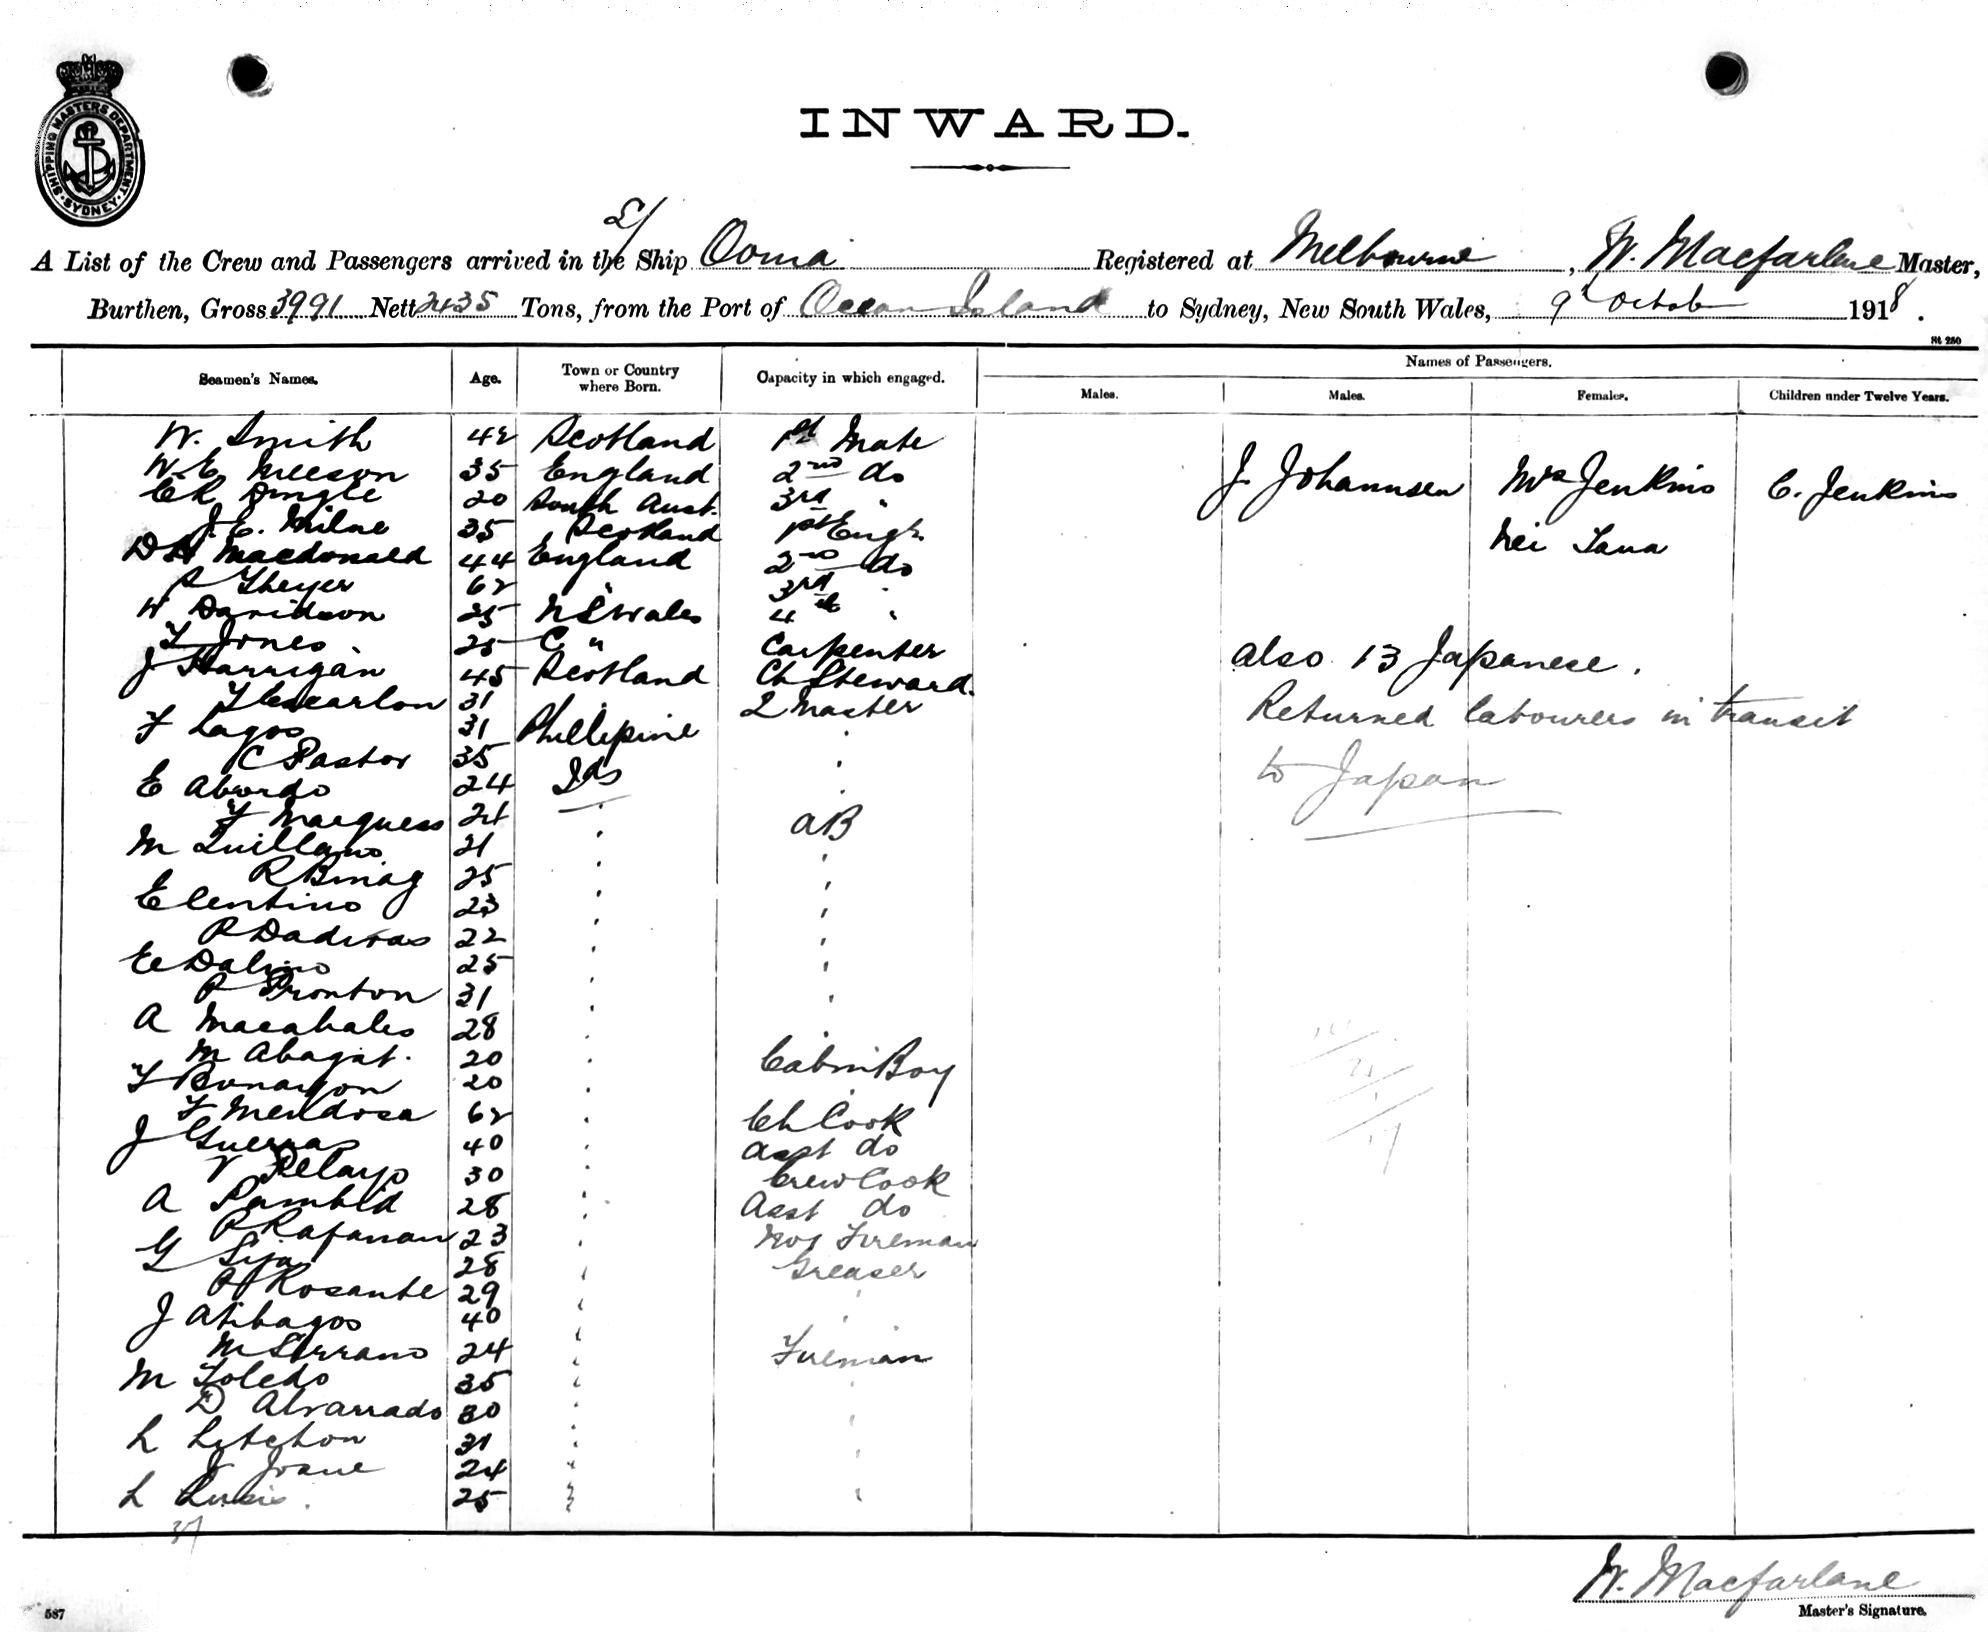 SHIPPING MASTERS DEPARTMENT
SYDNEY
INWARD.
A List of the Crew and Passengers arrived in the S/ Ship Ooma Registered at Melbourne, W. Macfarlane Master,
Burthen, Gross 3991 Nett 2435 Tons, from the Port of Ocean Island to Sydney, New South Wales, 9th Octob 1918.
St 250
Seamen's Names. Age. Town or Country where Born. Capacity in which engaged. Names of Passengers.
Males. Males. Females. Children under Twelve Years.
W. Smith 42 Scotland 1st Mate
W.E. Meeson 35 England 2nd do
J. Johannsen Mrs Jenkins C. Jenkins
CR Dingle 20 South Aust. 3rd "
J.E. Milne 35 Scotland 1st Engr.
Nei Tana
D A Macdonald 44 England 2nd do
Theyer 62 " 3rd "
W Davidson 25 N S Wales 4th "
T Jones 25 " Carpenter
also 13 Japanese.
J Harrigan 45 Scotland Ch Steward.
Returned labourers in transit
to Japan
31 2 Master
F Lagos 31 Phillipine "
C Pastor 35 "
E Abordo 24 Ids "
F Marquess 24 " AB
M Quillano 21 " "
R Binag 25 " "
E Clentino 23 " "
P Dadivas 22 " "
25 " "
P Pronton 31 " "
A Macabales 28 " "
M Abagat. 20 " Cabin Boy
20 "
F Mendosa 62 " Ch Cook
J Guerras 40 " Asst do
V Pelayo 30 " Crew Cook
A Pambid 28 " Asst do
P Rafanan 23 " No 1 Fireman
G Sija 28 " Greaser
Rosante 29 " "
J Atibagos 40 " "
M Serrano 24 " Fireman
M Toledo 35 " "
D Alvarrado 30 " "
L Letchon 31 " "
J Joane 24 "
L 25 " "
37
W. Macfarlane
587
Master's Signature.